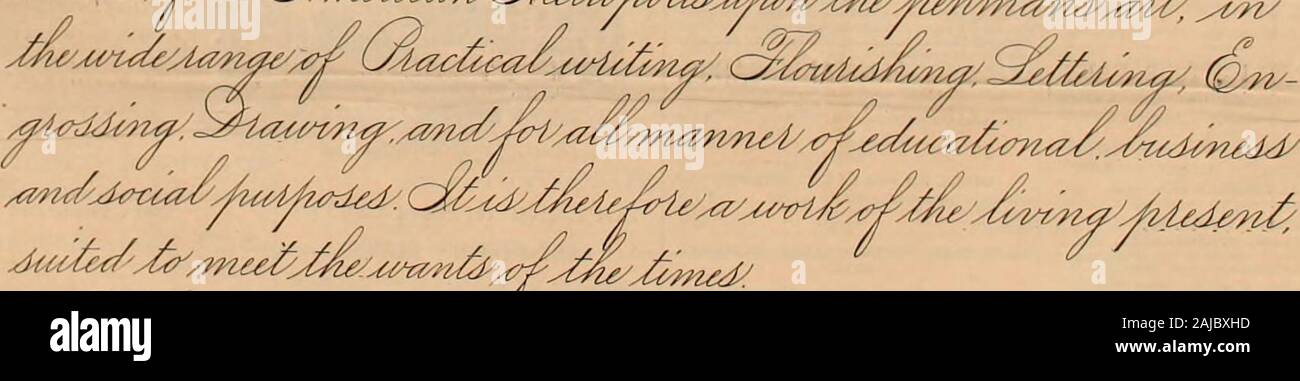 of American Metropolis upon the penman's art, in
the wide range of Practical writing, Flourishing, Lettering, En-
grossing, Drawing, and for all manner of educational, business
and social purposes. It is therefore a work of the living present,
suited to meet the wants of the times.
alamy
Image ID: 2AJBXHD
www.alamy.com